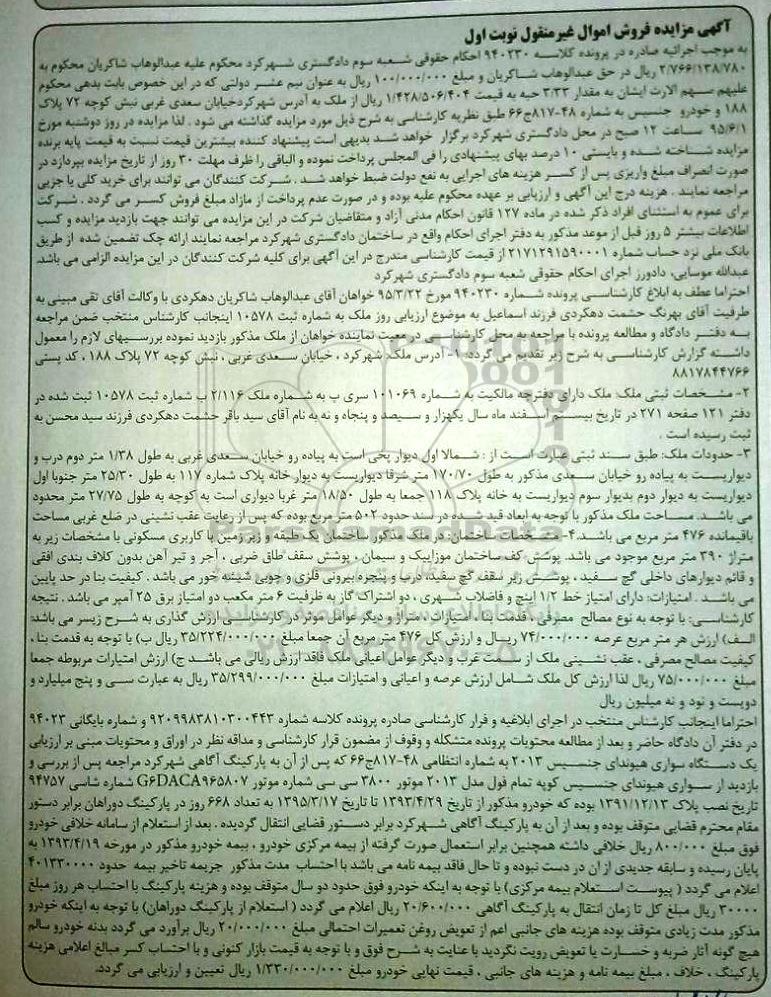 آگهی مزایده فروش اموال غیرمنقول نوبت اول
به موجب اجرائیه صادره در پرونده کلاسه ۹۴۰۲۳۰ احکام حقوقی شعبه سوم دادگستری شهرکرد محکوم علیه عبدالوهاب شاکریان محکوم به
۲/۷۶۶/۱۳۸/۷۸۰ ریال در حق عبدالوهاب شاکریان و مبلغ ۱۰۰/۰۰۰/۰۰۰ ریال به عنوان نیم عشر دولتی که در این خصوص بابت بدهی محکوم
علیهم سهم الارث ایشان به مقدار ۳/۳۳ حبه به قیمت ۱/۴۲۸/۵۰۶/۴۰۴ ریال از ملک به آدرس شهرکرد خیابان سعدی غربی نبش کوچه ۷۲ پلاک
۱۸۸ و خودرو جنسیس به شماره ۴۸-۸۱۷ج۶۶ طبق نظریه کارشناسی به شرح ذیل مورد مزایده گذاشته می شود . لذا مزایده در روز دوشنبه مورخ
۹۵/۶/۱ ساعت ۱۲ صبح در محل دادگستری شهرکرد برگزار خواهد شد بدیهی است پیشنهاد کننده بیشترین قیمت نسبت به قیمت پایه برنده
مزایده شناخته شده و بایستی ۱۰ درصد بهای پیشنهادی را فی المجلس پرداخت نموده و الباقی را ظرف مهلت ۳۰ روز از تاریخ مزایده بپردازد در
صورت انصراف مبلغ واریزی پس از کسر هزینه های اجرایی به نفع دولت ضبط خواهد شد . شرکت کنندگان می توانند برای خرید کلی یا جزیی
مراجعه نمایند . هزینه درج این آگهی و ارزیابی بر عهده محکوم علیه بوده و در صورت عدم پرداخت از مازاد مبلغ فروش کسر می گردد . شرکت
برای عموم به استثنای افراد ذکر شده در ماده ۱۲۷ قانون احکام مدنی آزاد و متقاضیان شرکت در این مزایده می توانند جهت بازدید مزایده و کسب
اطلاعات بیشتر ۵ روز قبل از موعد مذکور به دفتر اجرای احکام واقع در ساختمان دادگستری شهرکرد مراجعه نمایند ارائه چک تضمین شده از طریق
بانک ملی نزد حساب شماره ۲۱۷۱۲۹۱۵۹۰۰۰۱ از قیمت کارشناسی مندرج در این آگهی برای کلیه شرکت کنندگان در این مزایده الزامی می باشد.
عبدالله موسایی، دادورز اجرای احکام حقوقی شعبه سوم دادگستری شهرکرد
احتراما عطف به ابلاغ کارشناسی پرونده شماره ۹۴۰۲۳۰ مورخ ۹۵/۳/۲۲ خواهان آقای عبدالوهاب شاکریان دهکردی با وکالت آقای تقی مبینی به
طرفیت آقای بهرنگ حشمت دهکردی فرزند اسماعیل به موضوع ارزیابی روز ملک به شماره ثبت ۱۰۵۷۸ اینجانب کارشناس منتخب ضمن مراجعه
به دفتر دادگاه و مطالعه پرونده با مراجعه به محل کارشناسی در معیت نماینده خواهان از ملک مذکور بازدید نموده بررسیهای لازم را معمول
داشته گزارش کارشناسی به شرح زیر تقدیم می گردد: ۱- آدرس ملک: شهرکرد ، خیابان سعدی غربی ، نبش کوچه ۷۲ پلاک ۱۸۸ ، کد پستی
۸۸۱۷۸۴۴۷۶۶
۲- مشخصات ثبتی ملک: ملک دارای دفترچه مالکیت به شماره ۱۰۱۰۶۹ سری ب به شماره ملک ۲/۱۱۶ ب شماره ثبت ۱۰۵۷۸ ثبت شده در
دفتر ۱۲۱ صفحه ۲۷۱ در تاریخ بیستم اسفند ماه سال یکهزار و سیصد و پنجاه و نه به نام آقای سید باقر حشمت دهکردی فرزند سید محسن به
ثبت رسیده است .
۳- حدودات ملک: طبق سند ثبتی عبارت است از : شمالا اول دیوار پخی است به پیاده رو خیابان سعدی غربی به طول ۱/۳۸ متر دوم درب و
دیواریست به پیاده رو خیابان سعدی مذکور به طول ۱۷۰/۷۰ متر شرقا دیواریست به دیوار خانه پلاک شماره ۱۱۷ به طول ۲۵/۳۰ متر جنوبا اول
دیواریست به دیوار دوم بدیوار سوم دیواریست به خانه پلاک ۱۱۸ جمعا به طول ۱۸/۵۰ متر غربا دیواری است به کوچه به طول ۲۷/۷۵ متر محدود
می باشد. مساحت ملک مذکور با توجه به ابعاد قید شده در سند حدود ۵۰۲ متر مربع بوده که پس از رعایت عقب نشینی در ضلع غربی مساحت
باقیمانده ۴۷۶ متر مربع می باشد.۴- مشخصات ساختمان: در ملک مذکور ساختمان یک طبقه و زیر زمین با کاربری مسکونی با مشخصات زیر به
متراژ ۳۹۰ متر مربع موجود می باشد. پوشش کف ساختمان موزاییک و سیمان ، پوشش سقف طاق ضربی ، آجر و تیر آهن بدون کلاف بندی افقی
و قائم دیوارهای داخلی گچ سفید ، پوشش زیر سقف گچ سفید، درب و پنجره بیرونی فلزی و چوبی شیشه خور می باشد . کیفیت بنا در حد پایین
می باشد . امتیازات: دارای امتیاز خط ۱/۲ اینچ و فاضلاب شهری ، دو اشتراک گاز به ظرفیت ۶ متر مکعب دو امتیاز برق ۲۵ آمپر می باشد . نتیجه
کارشناسی: با توجه به نوع مصالح مصرفی ، قدمت بنا، امتیازات ، متراژ و دیگر عوامل موثر در کارشناسی ارزش گذاری به شرح زیسر می باشد:
الف) ارزش هر متر مربع عرصه ۷۴/۰۰۰/۰۰۰ ریال و ارزش کل ۴۷۶ متر مربع آن جمعا مبلغ ۳۵/۲۲۴/۰۰۰/۰۰۰ ریال ب) با توجه به قدمت بنا ،
کیفیت مصالح مصرفی ، عقب نشینی ملک از سمت غرب و دیگر عوامل اعیانی ملک فاقد ارزش ریالی می باشد ج) ارزش امتیازات مربوطه جمعا
مبلغ ۷۵/۰۰۰/۰۰۰ ریال لذا ارزش کل ملک شامل ارزش عرصه و اعیانی و امتیازات مبلغ ۳۵/۲۹۹/۰۰۰/۰۰۰ ریال به عبارت سی و پنج میلیارد و
دویست و نود و نه میلیون ریال
احتراما اینجانب کارشناس منتخب در اجرای ابلاغیه و قرار کارشناسی صادره پرونده کلاسه شماره ۹۲۰۹۹۸۳۸۱۰۳۰۰۴۴۳ و شماره بایگانی ۹۴۰۲۳
در دفتر آن دادگاه حاضر و بعد از مطالعه محتویات پرونده متشکله و وقوف از مضمون قرار کارشناسی و مداقه نظر در اوراق و محتویات مبنی بر ارزیابی
یک دستگاه سواری هیوندای جنسیس ۲۰۱۳ به شماره انتظامی ۴۸-۸۱۷ج۶۶ که پس از آن به پارکینگ آگاهی شهرکرد مراجعه پس از بررسی و
بازدید از سواری هیوندای جنسیس کوپه تمام فول مدل ۲۰۱۳ موتور ۳۸۰۰ سی سی شماره موتور G۶DACA۹۶۵۸۰۷ شماره شاسی ۹۴۷۵۷
تاریخ نصب پلاک ۱۳۹۱/۱۲/۱۳ بوده که خودرو مذکور از تاریخ ۱۳۹۳/۴/۲۹ تا تاریخ ۱۳۹۵/۳/۱۷ به تعداد ۶۶۸ روز در پارکینگ دوراهان برابر دستور
مقام محترم قضایی متوقف بوده و بعد از آن به پارکینگ آگاهی شهرکرد برابر دستور قضایی انتقال گردیده . بعد از استعلام از سامانه خلافی خودرو
فوق مبلغ ۸۰۰/۰۰۰ ریال خلافی داشته همچنین برابر استعمال صورت گرفته از بیمه مرکزی خودرو ، بیمه خودرو مذکور در مورخه ۱۳۹۳/۴/۱۹ به
پایان رسیده و سابقه جدیدی از ان در دست نبوده و تا حال فاقد بیمه نامه می باشد با احتساب مدت مذکور جریمه تاخیر بیمه حدود ۴۰۱۳۳۰۰۰۰
اعلام می گردد ( پیوست استعلام بیمه مرکزی) با توجه به اینکه خودرو فوق حدود دو سال متوقف بوده و هزینه پارکینگ با احتساب هر روز مبلغ
۳۰۰۰۰ ریال مبلغ کل تا زمان انتقال به پارکینگ آگاهی ۲۰/۶۰۰/۰۰۰ ریال اعلام می گردد ( استعلام از پارکینگ دوراهان) با توجه به اینکه خودرو
مذکور مدت زیادی متوقف بوده هزینه های جانبی اعم از تعویض روغن تعمیرات احتمالی مبلغ ۲۰/۰۰۰/۰۰۰ ریال برآورد می گردد بدنه خودرو سالم
هیچ گونه آثار ضربه و خسارت یا تعویض رویت نگردید با عنایت به شرح فوق و با توجه به قیمت بازار کنونی و با احتساب کسر مبالغ اعلامی هزینه
پارکینگ ، خلاف ، مبلغ بیمه نامه و هزینه های جانبی ، قیمت نهایی خودرو مبلغ ۱/۲۳۰/۰۰۰/۰۰۰ ریال تعیین و ارزیابی می گردد.
ParsNamadData